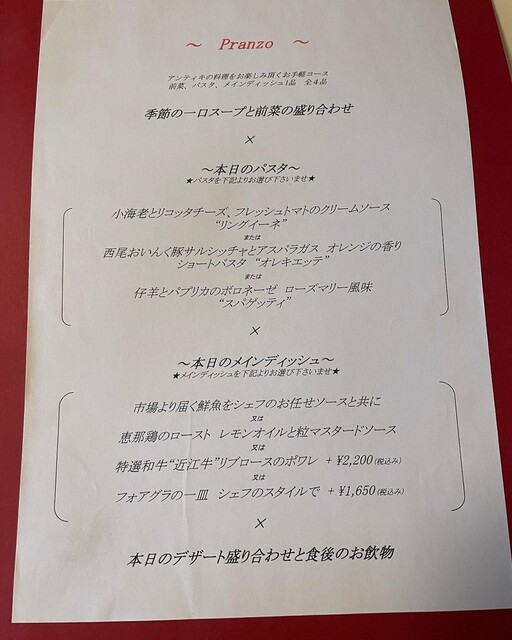 ～ Pranzo ～
アンティキの料理をお楽しみ頂くお手軽コース
前菜、パスタ、メインディッシュ1品 全4品
季節の一口スープと前菜の盛り合わせ
×
～本日のパスタ～
★パスタを下記よりお選び下さいませ★
小海老とリコッタチーズ、フレッシュトマトのクリームソース
“リングイーネ”
または
西尾おいんく豚サルシッチャとアスパラガス オレンジの香り
ショートパスタ “オレキエッテ”
または
仔羊とパプリカのボロネーゼ ローズマリー風味
“スパゲッティ”
×
～本日のメインディッシュ～
★メインディッシュを下記よりお選び下さいませ★
市場より届く鮮魚をシェフのお任せソースと共に
又は
恵那鶏のロースト レモンオイルと粒マスタードソース
又は
特選和牛“近江牛”リブロースのポワレ + ¥2,200(税込み)
又は
フォアグラの一皿 シェフのスタイルで + ¥1,650(税込み)
×
本日のデザート盛り合わせと食後のお飲物